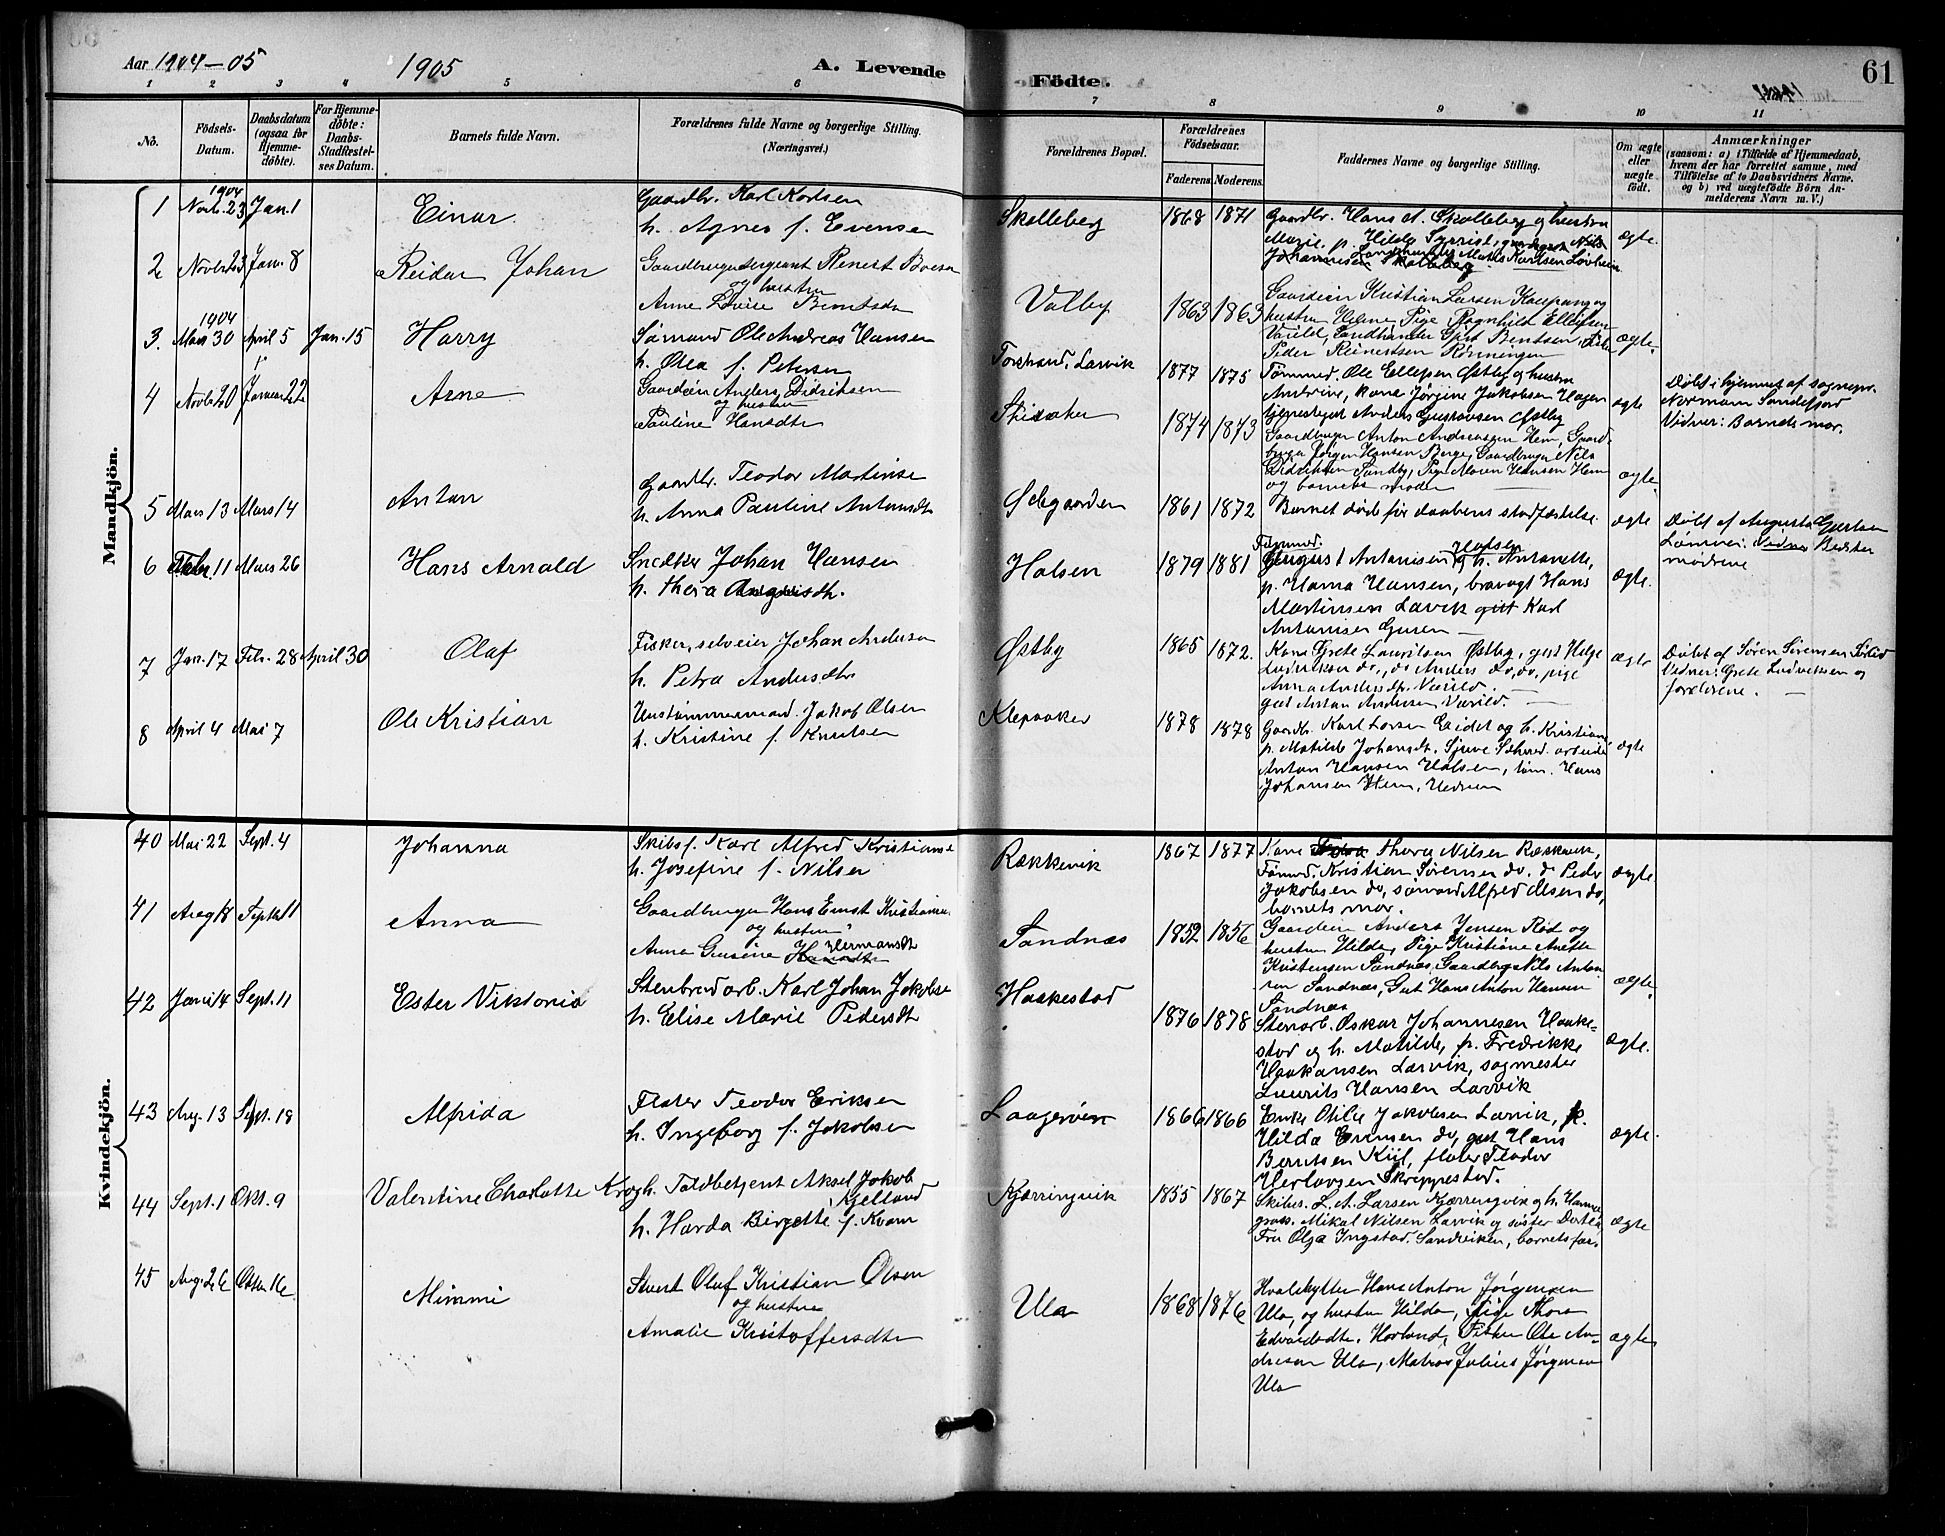 Aar 1904-05
1905
A. Levende
Födte.
61
1 2 3 4 5 6 7 8 9 10 11
No.
Födsels-Datum.
Daabsdatum (ogsaa for Hjemme-döbte).
For Hjemme-döbte: Daabs-Stadfæstel-ses Datum.
Barnets fulde Navn.
Forældrenes fulde Navne og borgerlige Stilling. (Næringsvei.)
Forældrenes Bopæl.
Forældrenes Födselsaar.
Faderens. Moderens.
Faddernes Navne og borgerlige Stilling.
Om ægte eller uægte födt.
Anmærkninger
(saasom: a) i Tilfælde af Hjemmedaab,
hvem der har forrettet samme, med
Tilföielse af to Daabsvidners Navne.
og b) ved uægtefödte Börn An-
melderens Navn m. V.)
Mandkjön.
1904
1 Novb. 23 Jan. 1
Einar
Gaardbr. Karl Karlsen
h. Agnes f. Evensen
Skalleberg
1868 1871
Gaardbr. Hans A. Skalleberg og hustru
Marie, p. Hilda
Johannesen Skalleberg
ægte.
2 Novb. 23 Janu. 8
Reidar Johan
og hustru
Anne Lovise Berntsdtr
Valby
1863 1863
Gaardeier Kristian Larsen Kaupang og
hustru Helene Pige Ragnhild Ellefsen
Værild, Landhandler Bentsen,
Peder Reinertsen Rönningen
ægte.
1904
3. Mars 30 April 5 Jan. 15
Harry
Sömand Ole Andreas Hansen
h. Olea f. Petersen
Torstrand, Larvik
1877 1875
Tömmed. Ole Ellefsen Østby og hustru
Andrine, kona Jörgine Jakobsen Hagen
Anders Gustavsen Østby
ægte
Döbt i hjemmet af sognepr.
Normann Sandefjord
Vidner: Barnets mor.
4 Novb 20 Januar 22
Arne
Gaardeier Anders Didriksen
og hustru
Pauline Hansdtr
Skisaker
1874 1873
Gaardbruger Anton Andreassen Hem, Gaard-
bruger Jörgen Hansen Berge, Gaardbruger Nils
Didriksen Sundby, Pige Maren Hansen Hem
og barnets moder
ægte.
5 Mars 13 Mars 14
Anton
Gaardbr. Teodor Martinse
h. Anna Pauline Antonsdtr
Ødegaarden
1861 1872
Barnet döde för daabens stadfæstelse.
ægte
Döbt af Augusta
Vidner Bedste
mödrene
6 Febr. 11 Mars 26
Hans Arnold
Snedker Johan Hansen
h. Thea
Halsen
1879 1881
August Antonisen Halsen og h. Antonette,
p. Hanna Hansen, Hans
Martinsen Larvik gut Karl
Antonisen
ægte.
7 Jan. 17 Feb. 28 April 30
Olaf
Fisker, selveier Johan Anderse
h. Petra Andersdtr
Østby
1865 1872.
Kone Grete Lauritsen Østby, gut Helge
Ludviksen do., do Anders do, do, pige
Anna Andersdtr. Værild.
gut Anton Andersen Værild.
ægte
Döbt af Sören Sörensen
Vidner: Grete Ludviksen og
forældrene.
8 April 4 Mai 7
Ole Kristian
Hustömmermand. Jakob Olsen
h. Kristine f. Knutsen
Klepaaker
1878 1878
Gaardb. Karl Larsen Eidet og h. Kristiane
p. Matilde Johansdt. Sjuve arbeider
Anton Hansen Halsen, töm. Hans
Johansen Hem, Hedrum
ægte
Kvindekjön.
40 Mai 22 Sept. 4
Johanna
Skibsf. Karl Alfred Kristianse
h. Josefine f. Nilsen
Rækkevik
1867 1877
Kone Thora Nilsen Rækkevik,
Kristian Sörensen do. do Peder
Jakobsen do, sömand Alfred Olsen do,
barnets mor.
ægte.
41 Aug 18 Septb. 11
Anna
Gaardbruger Hans Ernst Kristianse
og hustru
Anna Hermansdt
Sandnæs
1852 1856
Gaardeier Anders Jensen Röd og
hustru Hilda, Pige Kristiane Anette
Kristensen Sandnæs, Gaardbr. Nils Anton-
sen Sandnæs, Gut Hans Anton Hansen
Sandnæs
ægte.
42 Juni 14 Sept. 11
Ester Viktoria
Stenbrudarb. Karl Johan Jakobse
h. Elise Marie Pedersdt
Haakestad
1876 1878
Stenarb. Oskar Johannesen Haake-
stad og h. Matilde, p. Fredrikke
Haakansen Larvik, sagmester
Laurits Hansen Larvik
ægte.
43 Aug. 13 Sept. 18
Alfrida
Flöter Teodor Eriksen
h. Ingeborg f. Jakobsen
Laagerøen
1866 1866
Enke Otilie Jakobsen Larvik, p.
Hilda Evensen do, gut Hans
Berntsen Kiil, flöter Teodor
Herlovsen Skreppestad.
ægte.
44 Sept. 1 Okt. 9
Valentine Charlotte Krogh.
Toldbetjent Aksel Jakob
Kjelland
h. Harda Birgette f. Kvam
Kjerringvik
1855 1867
Skibsr. L. A. Larsen Kjærringvik og h. Hanna
gross. Mikal Nilsen Larvik og söster Dortea,
Fru Olga Ingstad. Sandviken, barnets far.
ægte
45 Aug. 26 Oktbr 16
Mimmi
Stuert Oluf Kristian Olsen
og hustru
Amalie Kristoffersdtr
Ula
1868 1876
Hvalskytter Hans Anton Jörgensen
Ula, og hustru Hilda, Pige Thora
Edvardsdtr. Havland, Fisker Ole An-
dresen Ula, Matros Julius Jörgensen
Ula
ægte